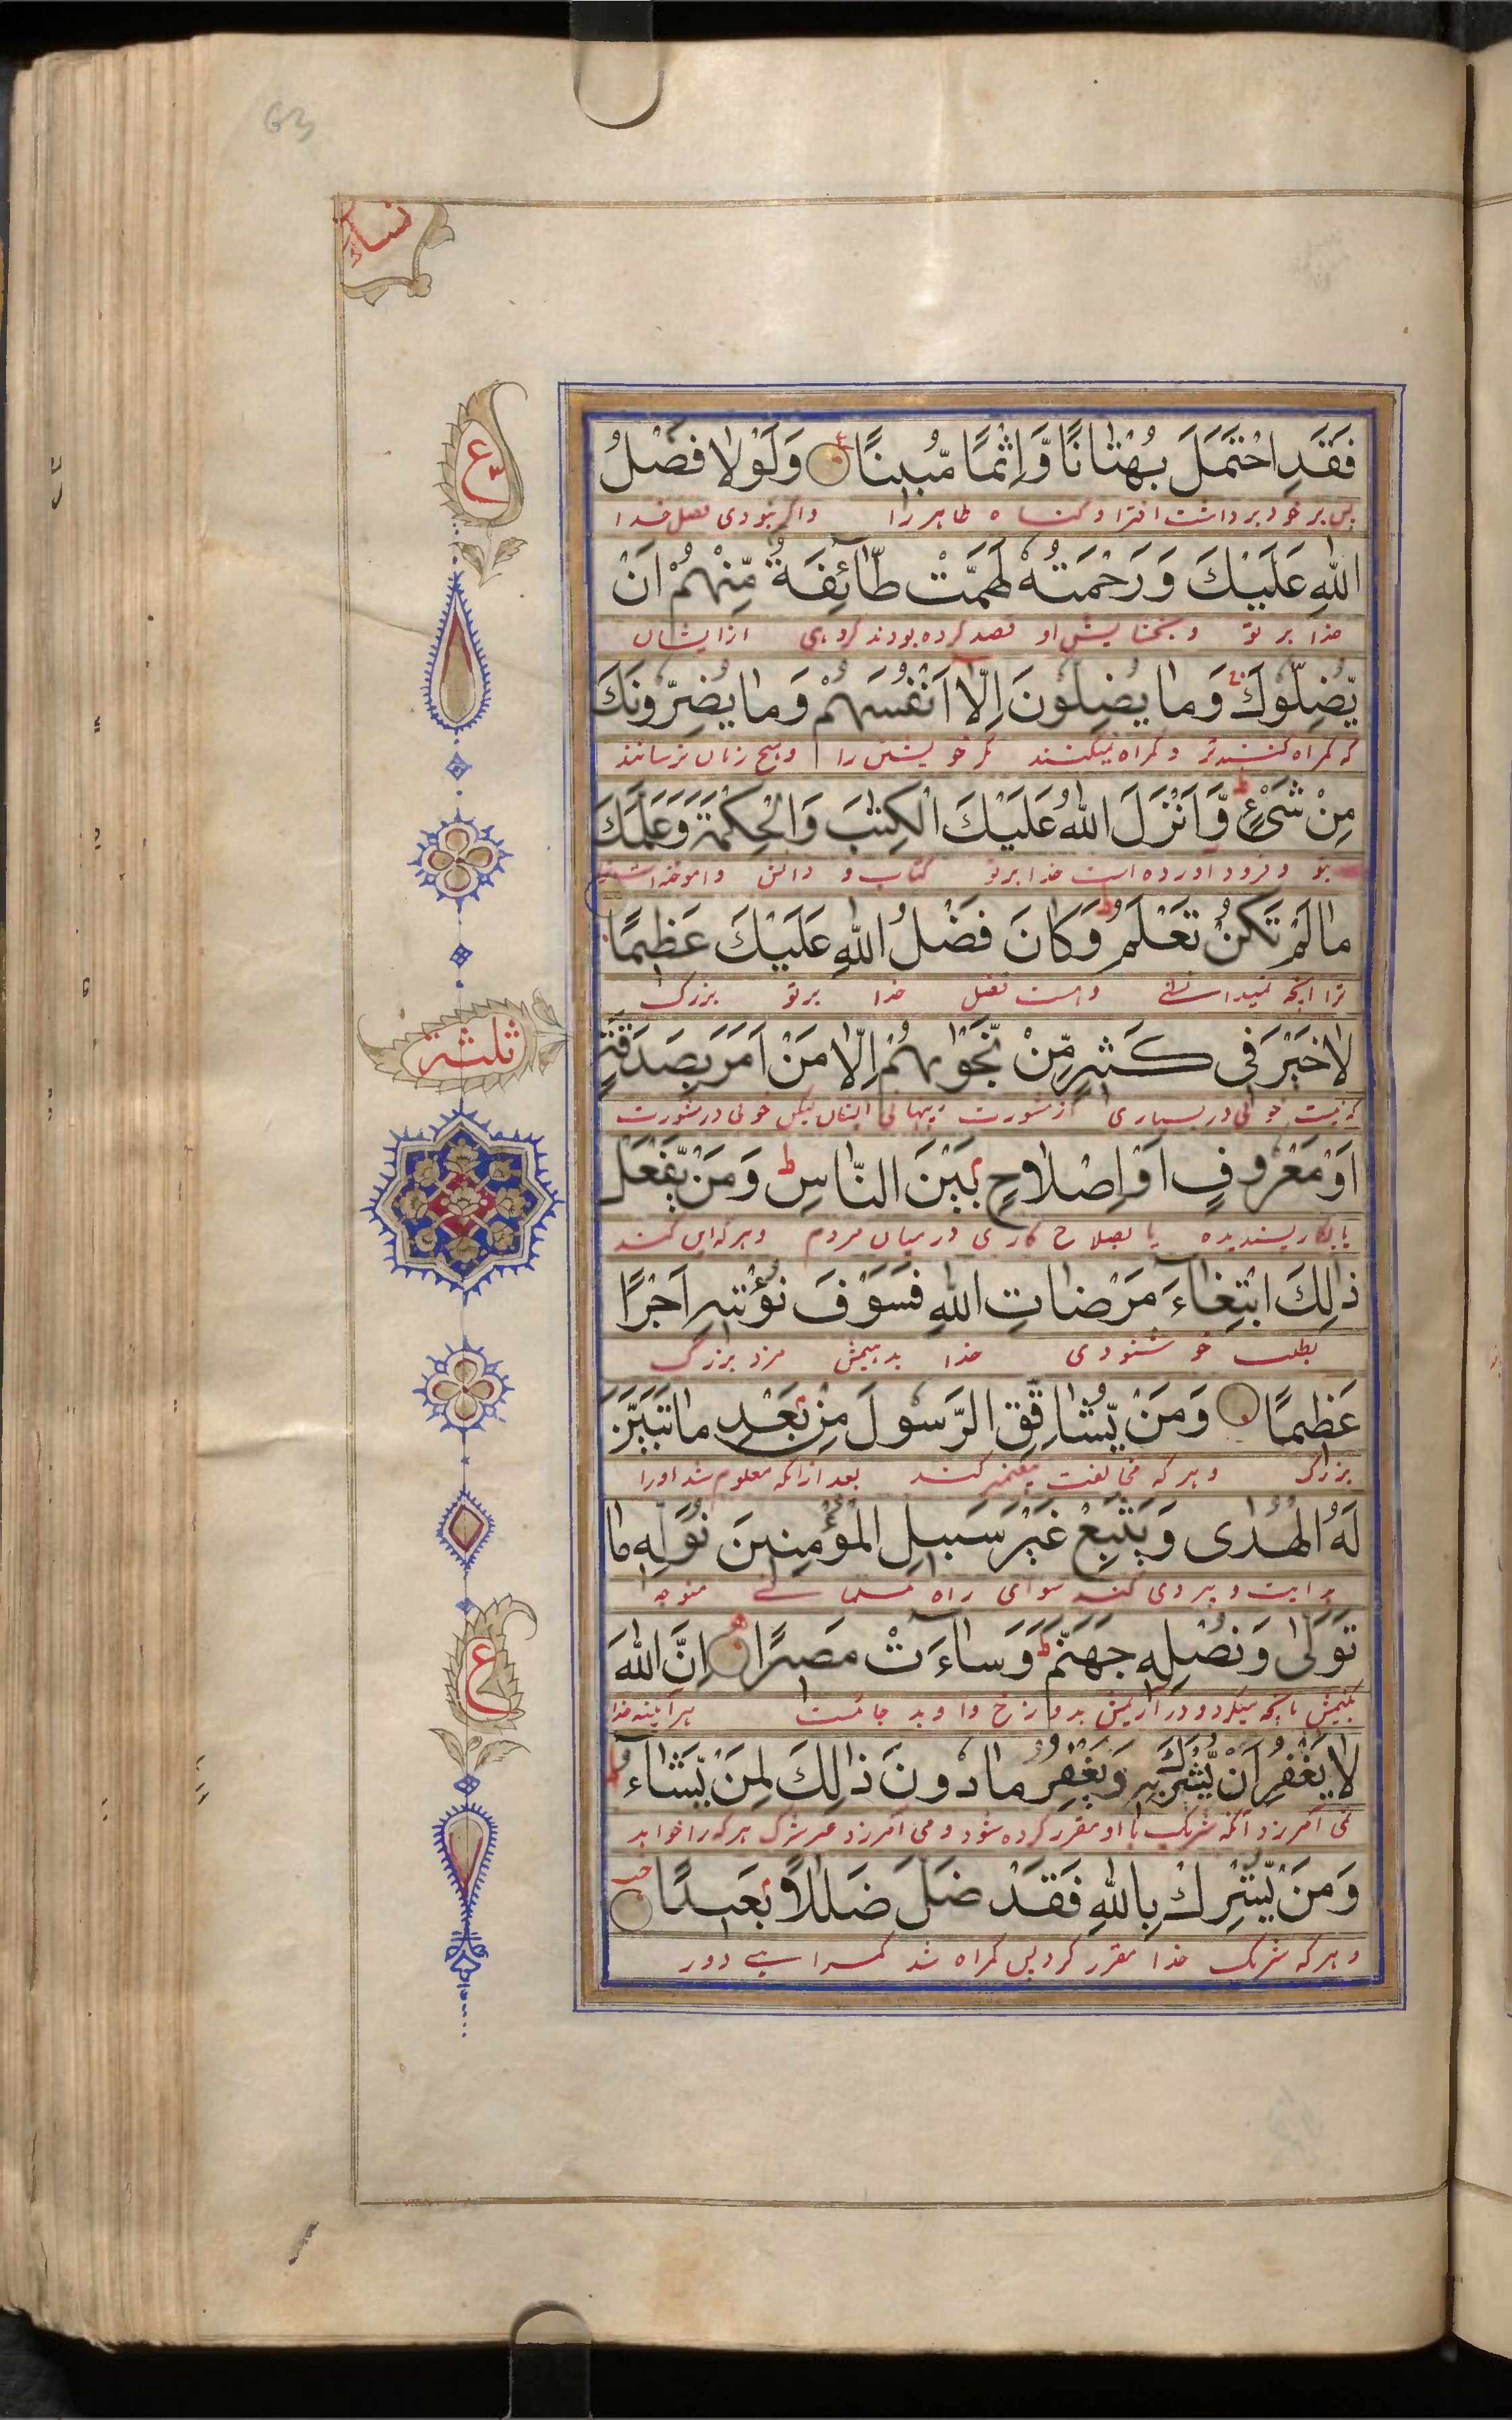 63
نساء
ع
فَقَدِ احْتَمَلَ بُهْتَانًا وَّاِثْمًا مُّبِينًا وَلَوْلَا فَضْلُ
پس بر خود برداشت افترا و گناه ظاهر را واگر نبودی فضل خدا
اللهِ عَلَيْكَ وَرَحْمَتُهُ لَهَمَّتْ طَّائِفَةٌ مِّنْهُمْ اَنْ
خدا بر تو و بخشایش او قصد کرده بودند گروهی از ایشان
يُّضِلُّوكَ وَمَا يُضِلُّونَ اِلَّا اَنْفُسَهُمْ وَمَا يَضُرُّونَكَ
که گمراه کنندتر و گمراه نمیکنند مگر خویشتن را و هیچ زیان نرسانند
مِنْ شَیْءٍ وَّاَنْزَلَ اللهُ عَلَيْكَ الْكِتٰبَ وَالْحِكْمَةَ وَعَلَّمَكَ
بتو و فرود آورده است خدا بر تو کتاب و دانش
مَا لَمْ تَكُنْ تَعْلَمُ وَكَانَ فَضْلُ اللهِ عَلَيْكَ عَظِيمًا
ترا آنچه نمیدانستی و هست فضل خدا بر تو بزرگ
ثلثة
لَا خَيْرَ فِى كَثِيرٍ مِّنْ نَّجْوٰىهُمْ اِلَّا مَنْ اَمَرَ بِصَدَقَةٍ
که نیست خوبی در بسیاری از مشورت پنهانی ایشان لیکن خوبی در مشورت
اَوْ مَعْرُوفٍ اَوْ اِصْلَاحٍ بَيْنَ النَّاسِ وَمَنْ يَّفْعَلْ
یا بکار پسندیده یا بصلاح کاری در میان مردم و هر که این کند
ذٰلِكَ ابْتِغَاءَ مَرْضَاتِ اللهِ فَسَوْفَ نُؤْتِيهِ اَجْرًا
بطلب خوشنودی خدا بدهیمش مزد بزرگ
عَظِيمًا وَمَنْ يُّشَاقِقِ الرَّسُولَ مِنْ بَعْدِ مَا تَبَيَّنَ
بزرگ و هر که مخالفت پیغمبر کند بعد از آنکه معلوم شد او را
لَهُ الْهُدٰى وَيَتَّبِعْ غَيْرَ سَبِيلِ الْمُؤْمِنِينَ نُوَلِّهِ مَا
هدایت و پیروی کند سوای راه مسلمانی متوجه
ع
تَوَلّٰى وَنُصْلِهِ جَهَنَّمَ وَسَاءَتْ مَصِيرًا اِنَّ اللهَ
کنیمش بآنچه میگردد و در آریمش بدوزخ و او بد جائست هر آینه خدا
لَا يَغْفِرُ اَنْ يُّشْرَكَ بِهِ وَيَغْفِرُ مَا دُونَ ذٰلِكَ لِمَنْ يَّشَاءُ
نمی آمرزد آنکه شریک با او مقرر کرده شود و می آمرزد غیر شرک هر که را خواهد
وَمَنْ يُّشْرِكْ بِاللهِ فَقَدْ ضَلَّ ضَلٰلًا بَعِيدًا
و هر که شریک خدا مقرر کرد پس گمراه شد گمراهی دور